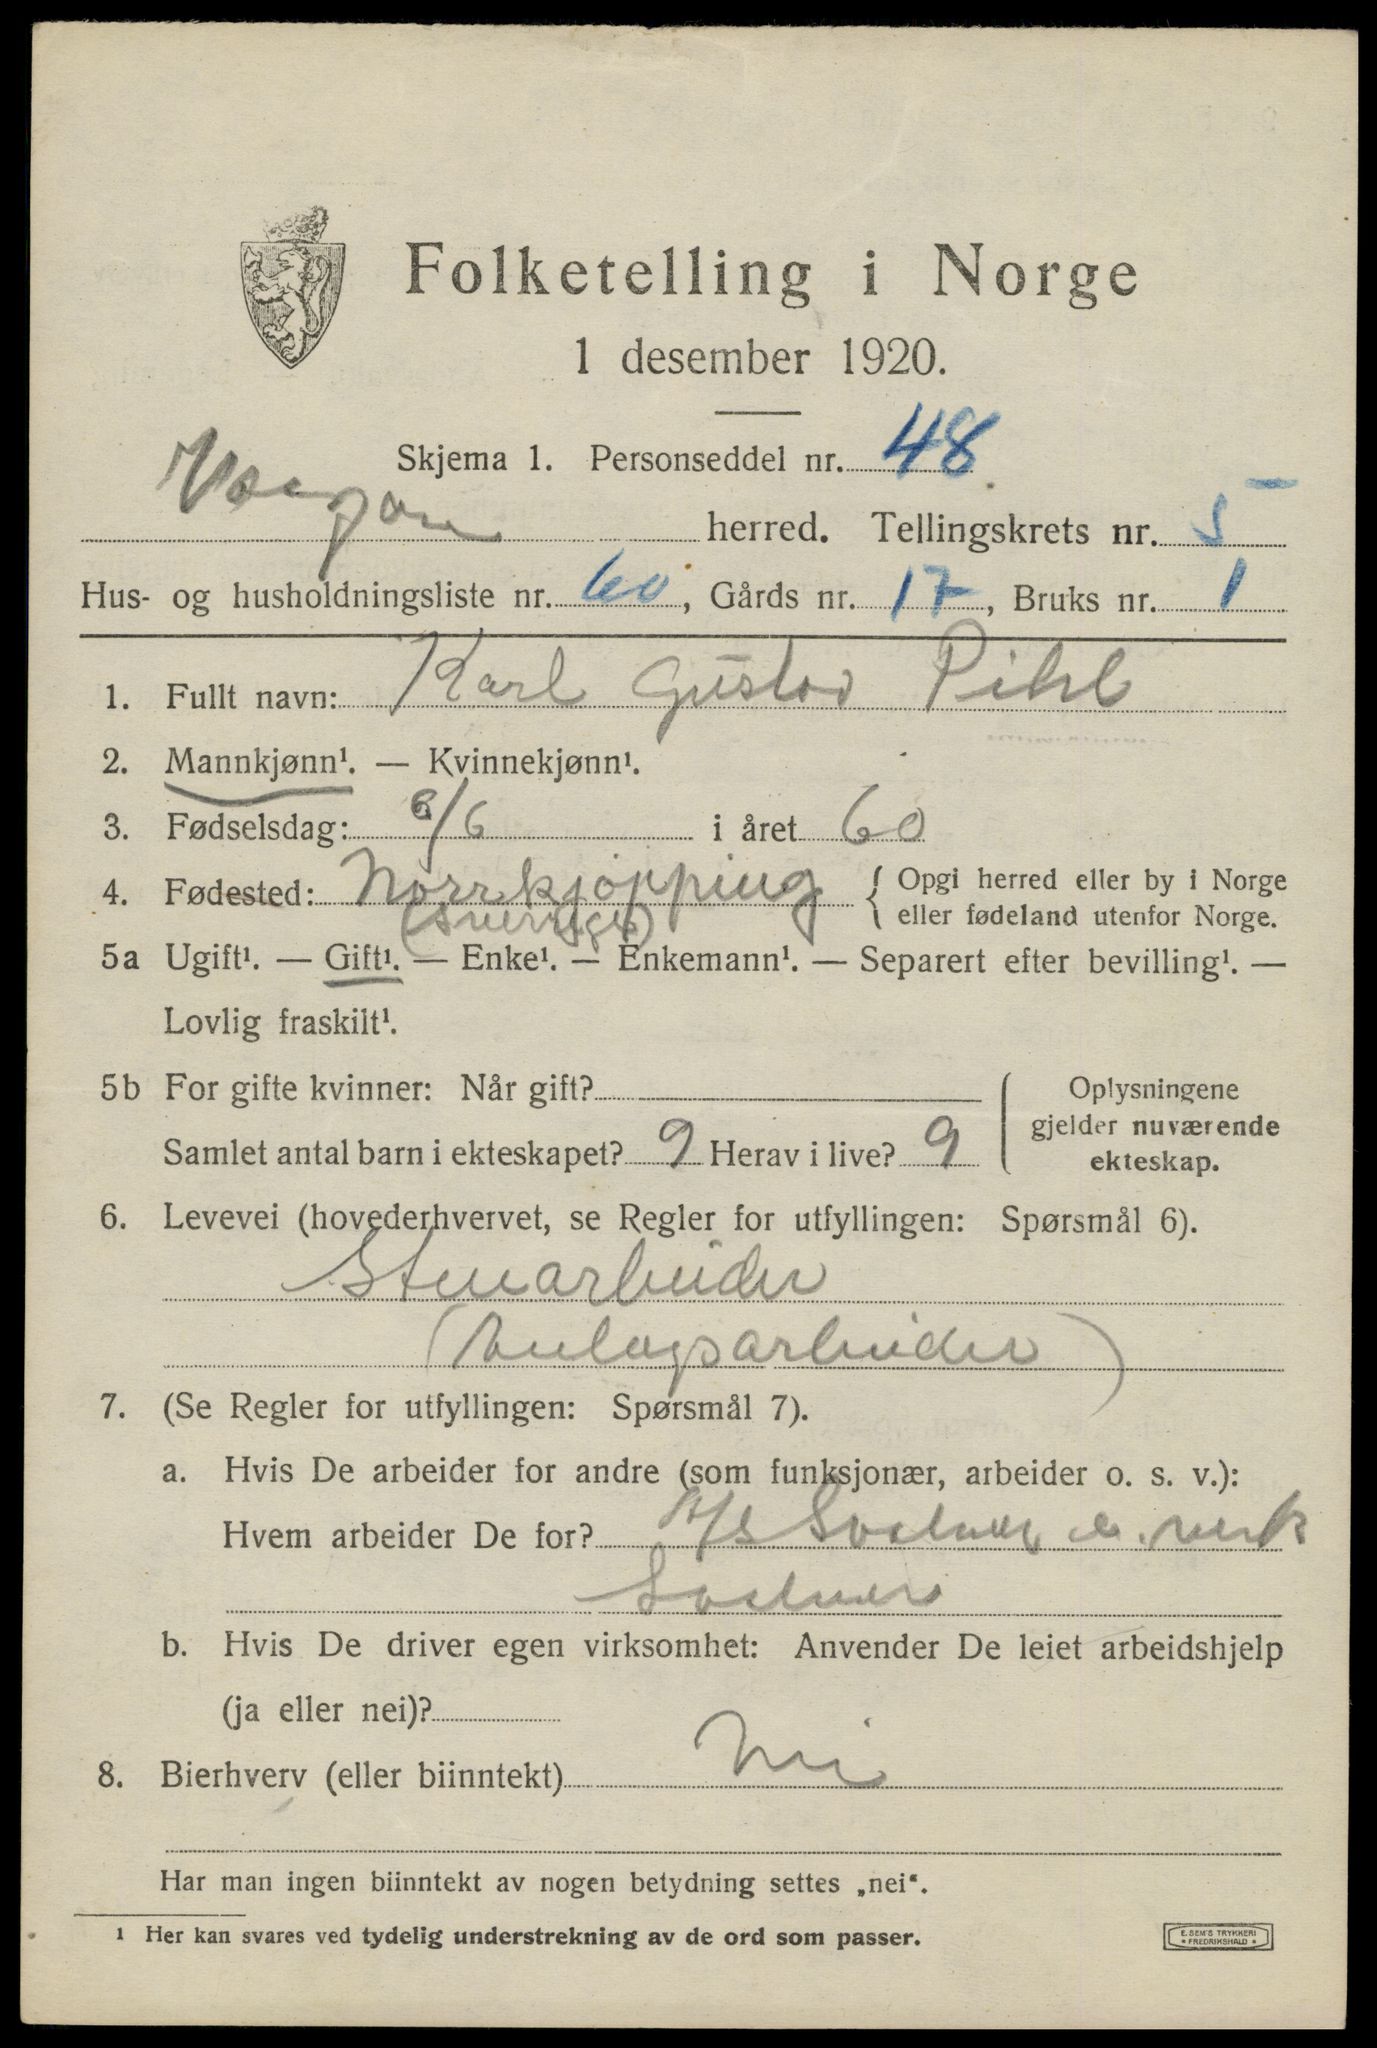 Folketelling i Norge
1 desember 1920.
Skjema 1. Personseddel nr. 48
Vaagan herred. Tellingskrets nr. 5
Hus- og husholdningsliste nr. 60, Gårds nr. 17, Bruks nr. 1
1. Fullt navn: Karl Gustav Pihl
2. Mannkjønn¹. — Kvinnekjønn¹.
3. Fødselsdag: 6/6 i året 60
4. Fødested: Norrkjøpping { Opgi herred eller by i Norge
(Sverrige) eller fødeland utenfor Norge.
5a Ugift¹. — Gift¹. — Enke¹. — Enkemann¹. — Separert efter bevilling¹. —
Lovlig fraskilt¹.
5b For gifte kvinner: Når gift? Oplysningene
gjelder nuværende
Samlet antal barn i ekteskapet? 9 Herav i live? 9 ekteskap.
6. Levevei (hovederhvervet, se Regler for utfyllingen: Spørsmål 6).
Stenarbeider
(Anlægsarbeider)
7. (Se Regler for utfyllingen: Spørsmål 7).
a. Hvis De arbeider for andre (som funksjonær, arbeider o. s. v.):
Hvem arbeider De for? A/S Svolvær e. verk
Svolvær
b. Hvis De driver egen virksomhet: Anvender De leiet arbeidshjelp
(ja eller nei)?
8. Bierhverv (eller biinntekt) Nei
Har man ingen biinntekt av nogen betydning settes „nei“.
1 Her kan svares ved tydelig understrekning av de ord som passer.
E. SEM'S TRYKKERI
* FREDRIKSHALD *